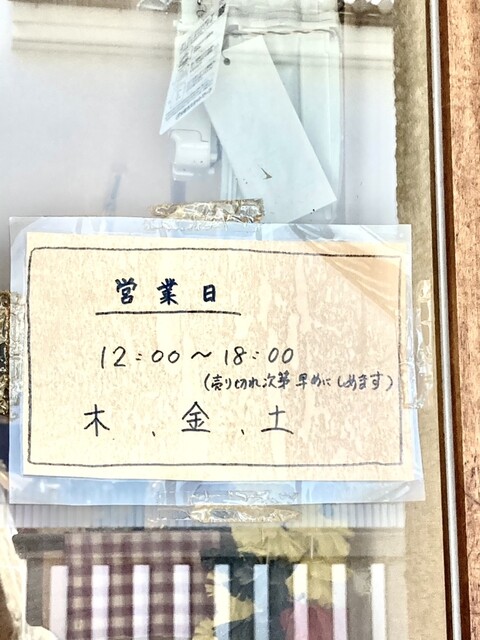 営業日
12:00～18:00
(売り切れ次第早めにしめます)
木、金、土